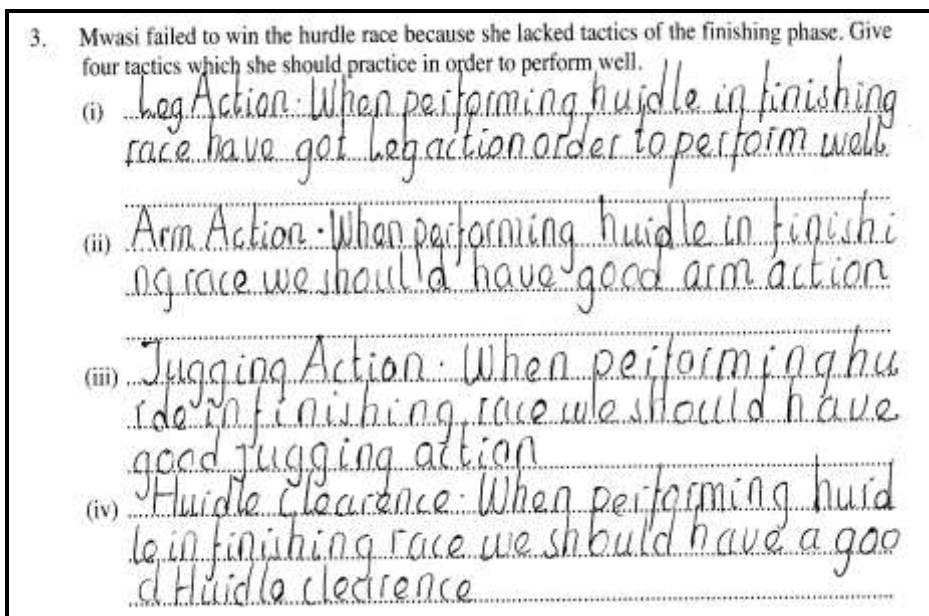 3. Mwasi failed to win the hurdle race because she lacked tactics of the finishing phase. Give
four tactics which she should practice in order to perform well.
(i) Leg Action. When performing hurdle in finishing
race have got Leg action order to perform well
(ii) Arm Action. When performing hurdle in finishi
ng race we should have good arm action
(iii) Jugging Action. When performing hu
rde in finishing race we should have
good jugging action
(iv) Hurdle Clearence. When performing hurd
le in finishing race we should have a goo
d Hurdle clearence